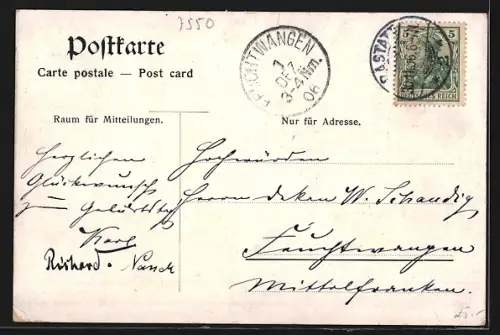 7550
Postkarte
Carte postale — Post card
Raum für Mitteilungen.
Nur für Adresse.
FEUCHTWANGEN
1
DEZ
3-4 Nm.
06
RASTATT
5
5
DEUTSCHES REICH
Herzlichen
Glückwunsch
zum Geburtstag
Karl
Richard
Hochwürden
Herrn Dekan W. Schaudig
Feuchtwangen
Mittelfranken.